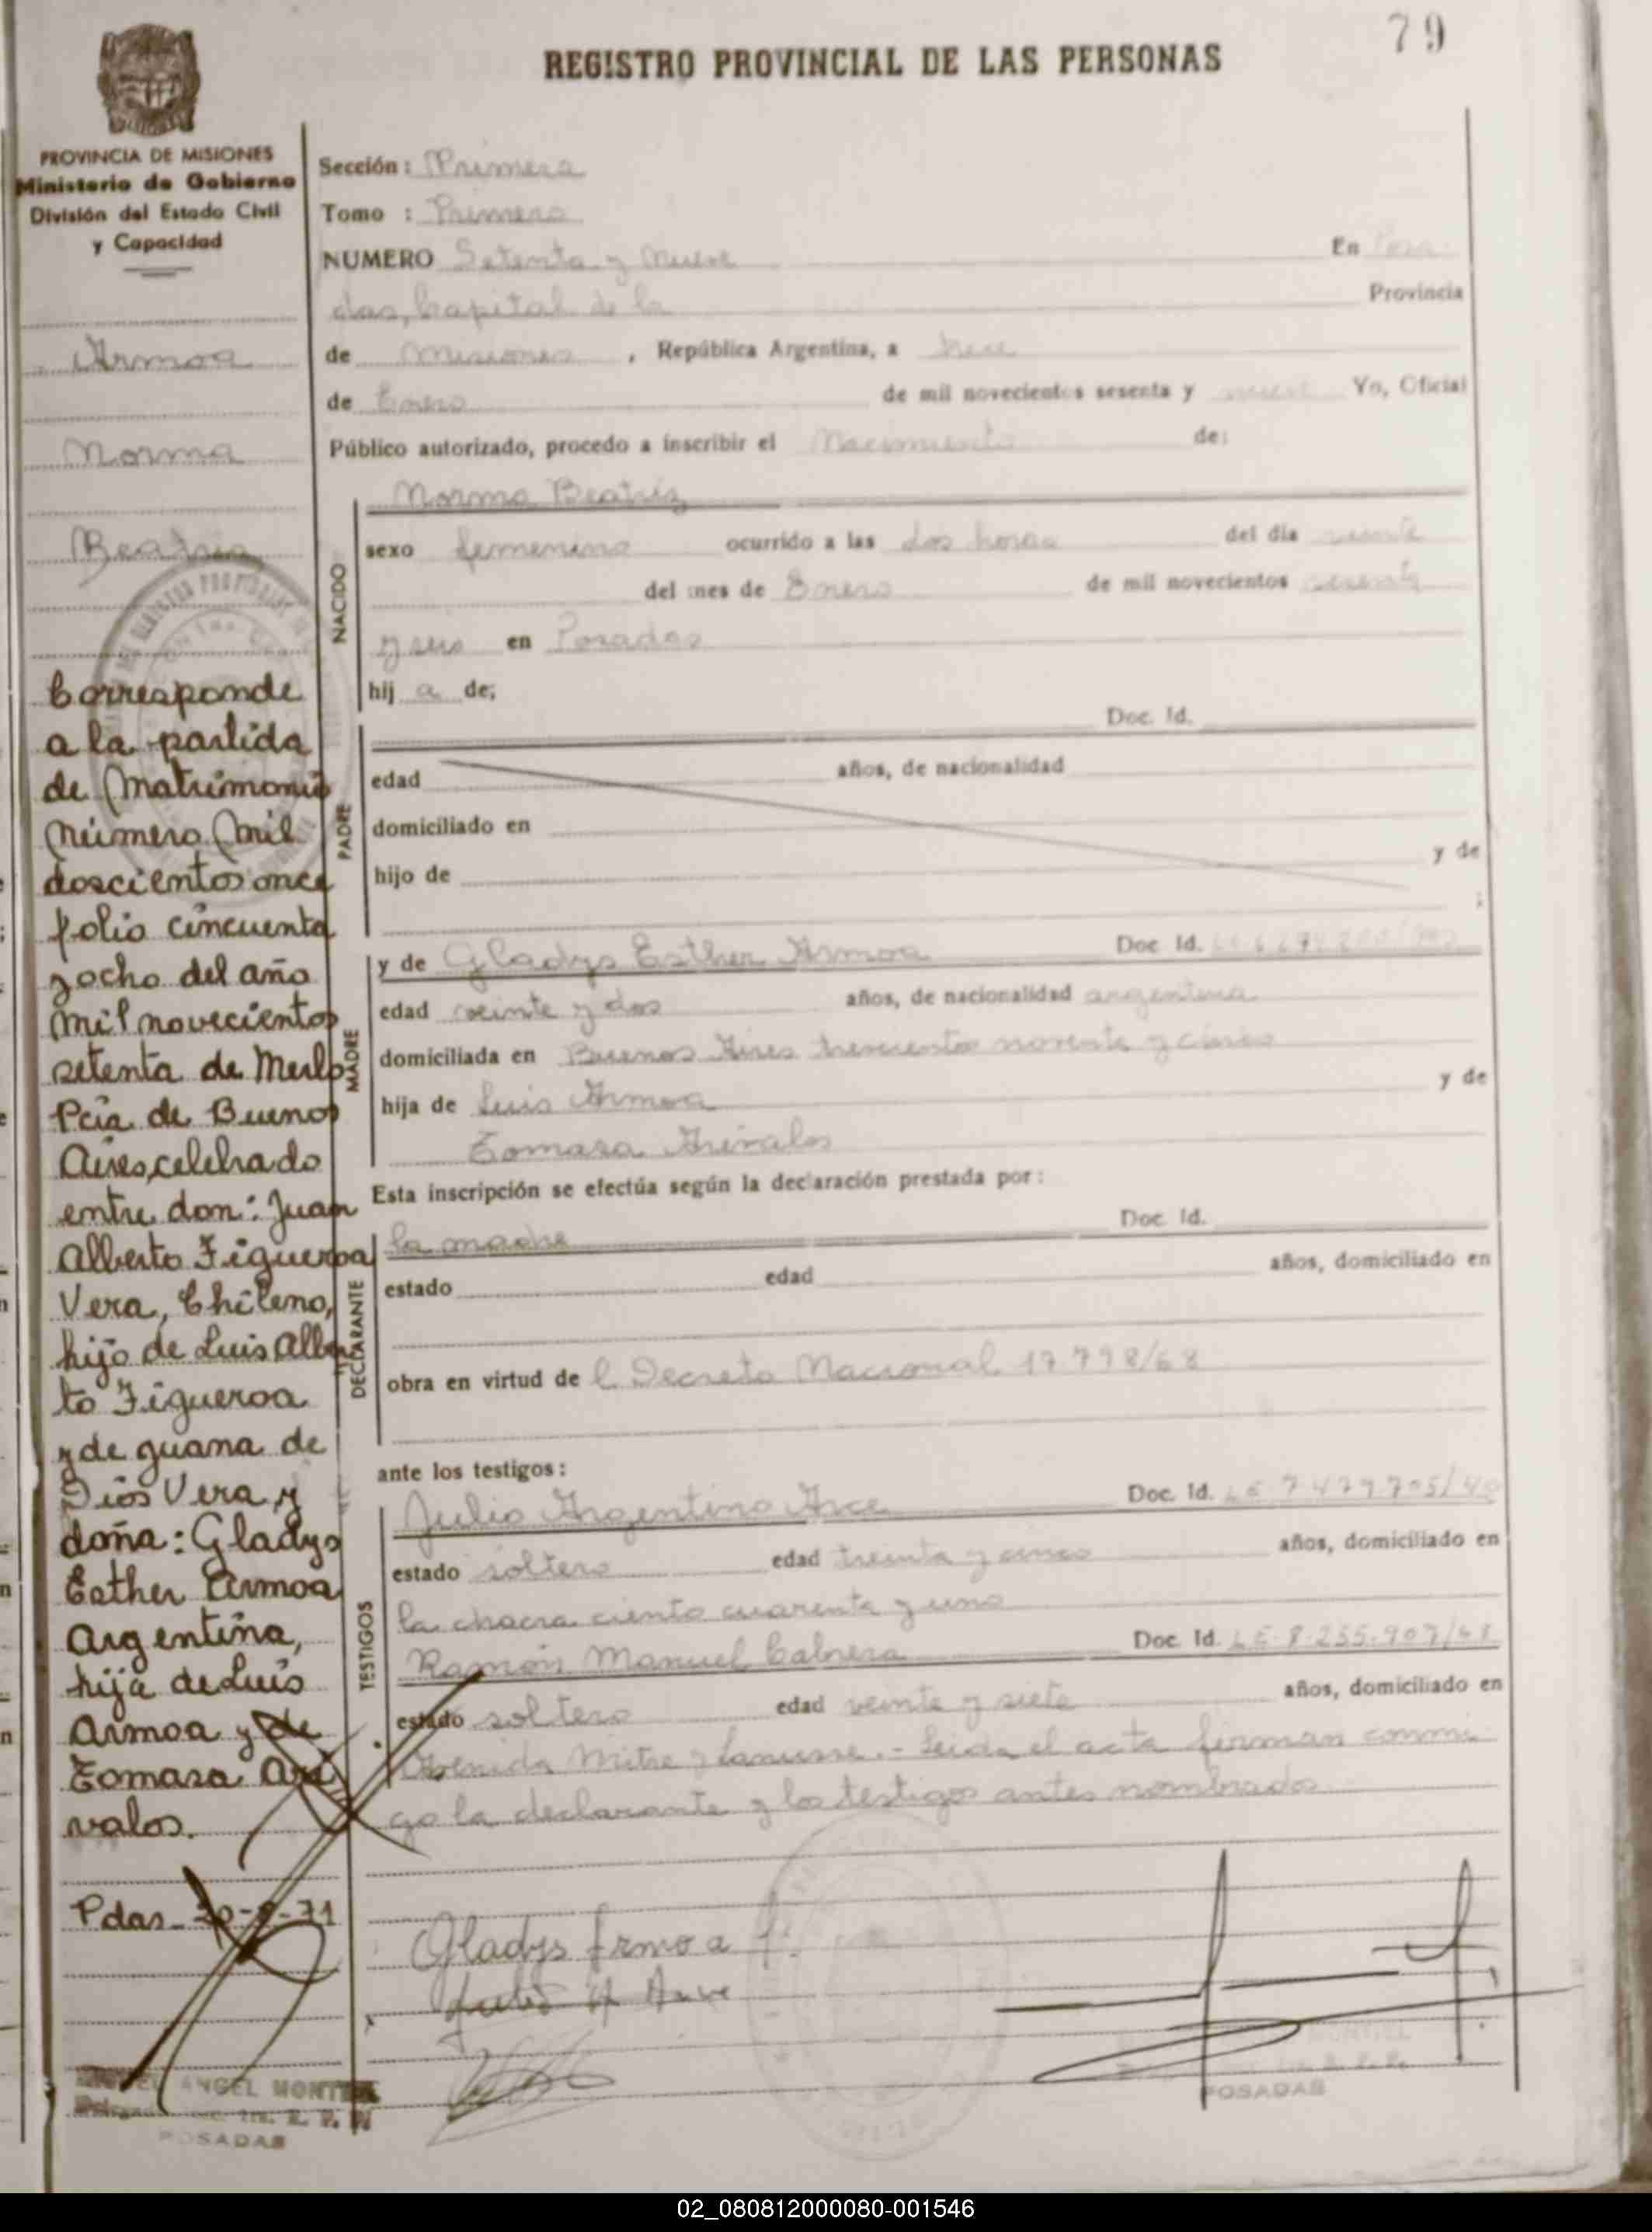 79
REGISTRO PROVINCIAL DE LAS PERSONAS
PROVINCIA DE MISIONES
Ministerio de Gobierno
División del Estado Civil
y Capacidad
Armoa
Norma
Beatriz
Corresponde
a la partida
de Matrimonio
Número mil
doscientos once
folio cincuenta
y ocho del año
mil novecientos
setenta de Merlo
Pcia de Buenos
Aires, celebrado
entre don: Juan
Alberto Figueroa
Vera, Chileno,
hijo de Luis Alber
to Figueroa
y de Juana de
Dios Vera y
doña: Gladys
Esther Armoa
Argentina,
hija de Luis
Armoa y de
Tomasa Aré
valos.
Pdas 71
ANGEL
POSADAS
Sección: Primera
Tomo : Primero
NUMERO Setenta y nueve En Posa
das, Capital de la Provincia
de Misiones, República Argentina, a
de Enero de mil novecientos sesenta y nueve Yo, Oficial
Público autorizado, procedo a inscribir el Nacimiento de:
NACIDO
Norma Beatriz
sexo femenino ocurrido a las dos horas del día veinte
del mes de Enero de mil novecientos sesenta
y seis en Posadas
hij a de;
PADRE
Doc. Id.
edad años, de nacionalidad
domiciliado en
hijo de y de
;
MADRE
y de Gladys Esther Armoa Doc Id.
edad veinte y dos años, de nacionalidad argentina
domiciliada en Buenos Aires trescientos noventa y cinco
hija de Luis Armoa y de
Tomasa
Esta inscripción se efectúa según la declaración prestada por:
DECLARANTE
la madre Doc. Id.
estado edad años, domiciliado en
obra en virtud de l Decreto Nacional 17.798/68
ante los testigos:
TESTIGOS
Julio Argentino Arce Doc. Id. LE 7.479.705/
estado soltero edad treinta y cinco años, domiciliado en
la chacra ciento cuarenta y uno
Ramón Manuel Cabrera Doc. Id. LE 8.255.907/68
estado soltero edad veinte y siete años, domiciliado en
Avenida Mitre y Lanusse.- Leida el acta firman conmi
go la declarante y los testigos antes nombrados
Gladys Armoa
Julio A Arce
POSADAS
02_080812000080-001546